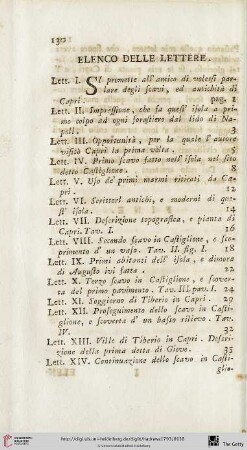 130
ELENCO DELLE LETTERE.
Lett. I. SI promette all'amico di volersi par-
lare degli scavi, ed antichità di
Capri. pag. 1
Lett. II. Impressione, che fa quest' isola a pri-
mo colpo ad ogni forestiere dal lido di Na-
poli. 3
Lett. III. Opportunità, per la quale l'autore
visitò Capri la prima volta. 5
Lett. IV. Primo scavo fatto nell'isola nel sito
detto Castiglione. 8
Lett. V. Uso de' primi marmi ritirati da Ca-
pri. 12
Lett. VI. Scrittori antichi, e moderni di que-
st' isola. 14
Lett. VII. Descrizione topografica, e pianta di
Capri. Tav. I. 16
Lett. VIII. Secondo scavo in Castiglione, e sco-
primento d' un vaso. Tav. II. fig. I. 18
Lett. IX. Primi abitanti dell' isola, e dimora
di Augusto ivi fatta. 22
Lett. X. Terzo scavo in Castiglione, e scover-
ta del primo pavimento. Tav. III. pav. I. 24
Lett. XI. Soggiorno di Tiberio in Capri. 29
Lett. XII. Proseguimento dello scavo in Casti-
glione, e scoverta d' un basso rilievo. Tav.
IV. 32
Lett. XIII. Ville di Tiberio in Capri. Descri-
zione della prima detta di Giove. 35
Lett. XIV. Continuazione dello scavo in Casti-
glio-